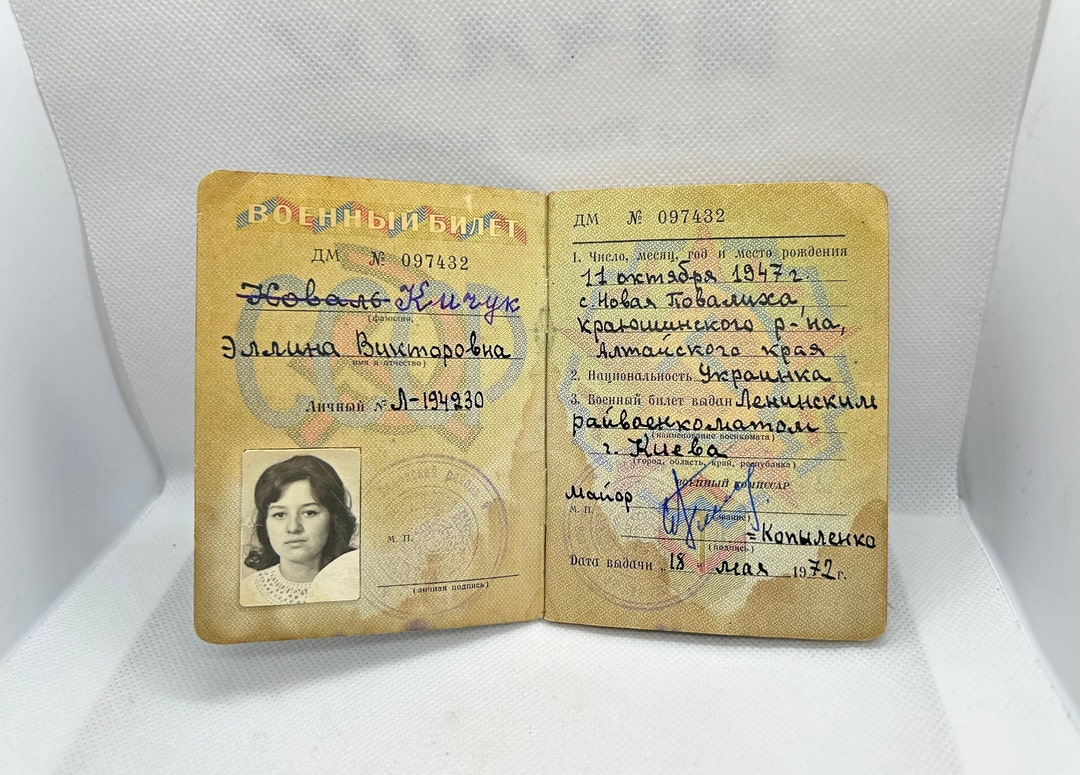 ВОЕННЫЙ БИЛЕТ
ДМ № 097432
Коваль Кичук
(фамилия,
Эллина Викторовна
имя и отчество)
Личный № Л-194230
М. П.
(личная подпись)
ДМ № 097432
1. Число, месяц, год и место рождения
11 октября 1947 г.
с. Новая Повалиха,
краюшинского р-на,
Алтайского края
2. Национальность Украинка
3. Военный билет выдан Ленинским
райвоенкоматом
(наименование военкомата)
г. Киева
(город, область, край, республика)
ВОЕННЫЙ КОМИССАР
майор
М. П.
(звание)
=Копыленко
(подпись)
Дата выдачи „18 " мая 1972 г.